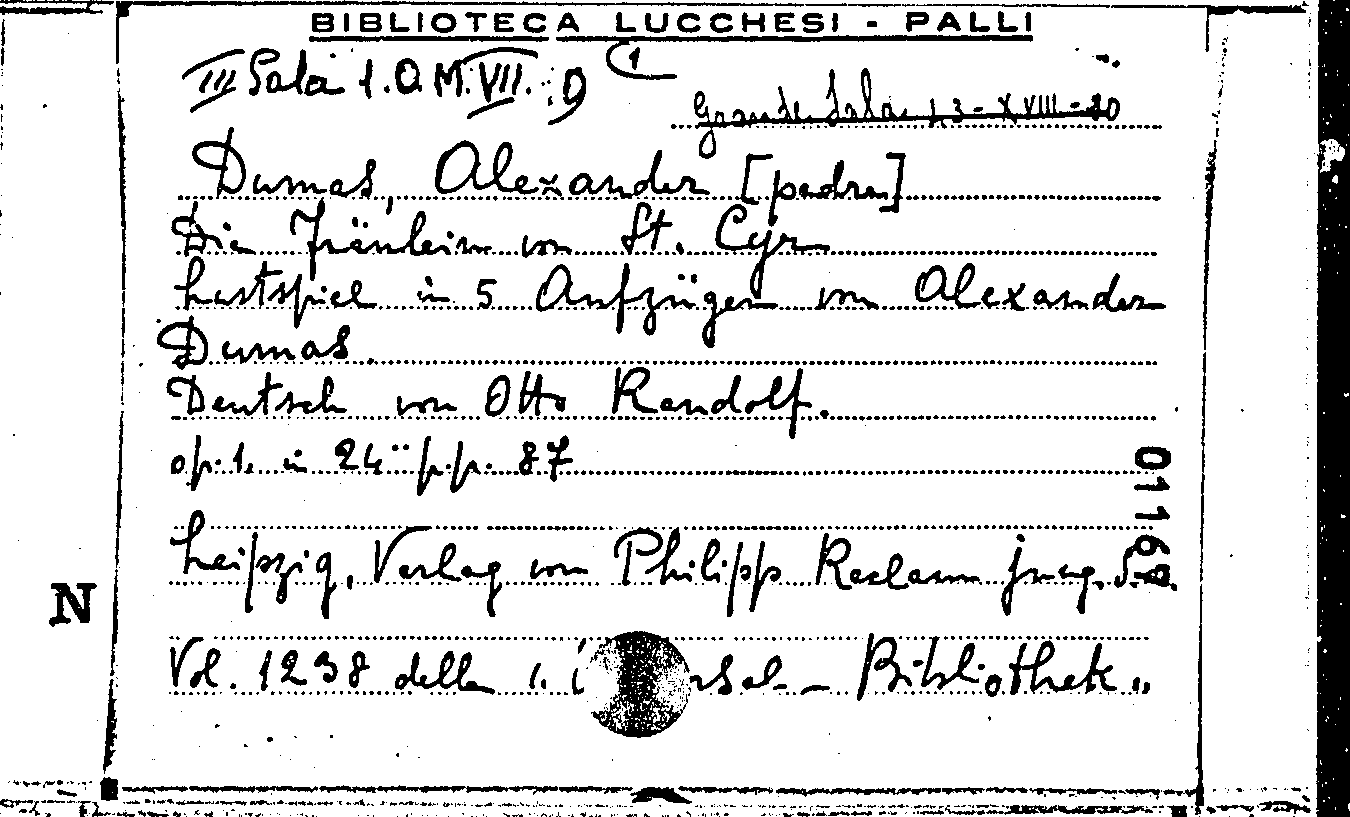 BIBLIOTECA LUCCHESI - PALLI
III Sala 1.O.M.VII. D (1
Grande Sala 13-XVIII-20
Dumas, Alexander [padre]
Die Fräulein von St. Cyr
Lustspiel in 5 Aufzügen von Alexander
Dumas.
Deutsch von Otto Randolf.
op. 1. in 24° p.p. 87
Leipzig, Verlag von Philipp Reclam jung.
0116
N
Vol. 1238 della rsal - Bibliothek „